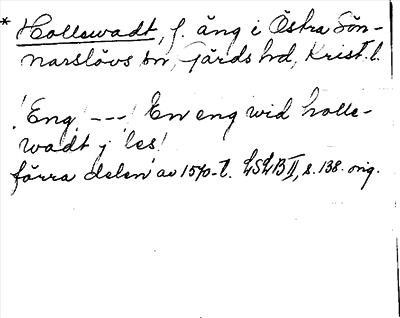 * Hollewadt, f. äng i Östra Sön-
narslövs sn, Gärds hd, Krist. l.
'Eng' --- 'En eng wid holle-
wadt j les'
förra delen av 1570-t. LSLB II, s. 138. orig.